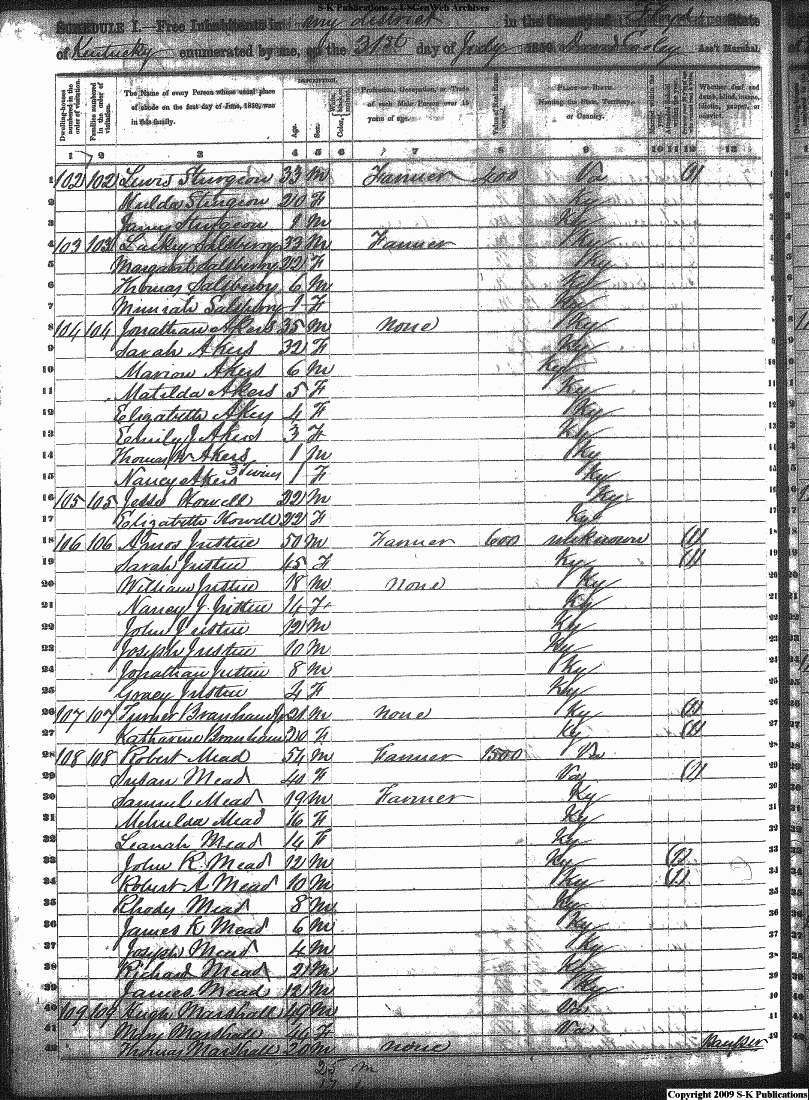 S-K Publications - USGenWeb Archives
SCHEDULE I.—Free Inhabitants in any district in the County of Floyd State
of Kentucky enumerated by me, on the 31st day of July 1850. Ass't Marshal.
Dwelling-houses numbered in the order of visitation.
Families numbered in the order of visitation.
The Name of every Person whose usual place of abode on the first day of June, 1850, was in this family.
DESCRIPTION.
Age.
Sex.
Color,
Profession, Occupation, or Trade of each Male Person over 15 years of age.
Value of Real Estate owned.
PLACE OF BIRTH.
Naming the State, Territory, or Country.
Whether deaf and dumb, blind, insane, idiotic, pauper, or convict.
1 2 3 4 5 6 7 8 9 10 11 12 13
1 102 102 Lewis Sturgeon 33 M Farmer 400 Va (1
2 Hulda Sturgeon 20 F Ky
3 James Sturgeon 1 M Ky
4 103 103 Salsberry 23 M Farmer Ky
5 Margaret Salsberry 22 F Ky
6 Thomas Salsberry 6 M Ky
7 Salsberry 1 F Ky
8 104 104 Jonathan Akers 35 M none Ky
9 Sarah Akers 32 F Ky
10 Marion Akers 6 M Ky
11 Matilda Akers 5 F Ky
12 Elizabeth Akers 4 F Ky
13 Emily J Akers 3 F Ky
14 Thomas W Akers 1 M Ky
15 Nancy Akers Twins 1 F Ky
16 105 105 Jesse Howell 22 M Ky
17 Elizabeth Howell 22 F Ky
18 106 106 Amos Justice 50 M Farmer 600 unknown (1)
19 Sarah Justice 45 F Ky (1)
20 William Justice 18 M none Ky
21 Nancy J Justice 14 F Ky
22 John Justice 12 M Ky
23 Joseph Justice 10 M Ky
24 Jonathan Justice 8 M Ky
25 Gracy Justice 4 F Ky
26 107 107 Turner Branham Jr 21 M none Ky (1)
27 Katharine Branham 20 F Ky (1)
28 108 108 Robert Mead 54 M Farmer 1500 Va
29 Susan Mead 40 F Va (1)
30 Samuel Mead 19 M Farmer Ky
31 Mehulda Mead 16 F Ky
32 Leanah Mead 14 F Ky
33 John R. Mead 12 M Ky (1)
34 Robert A Mead 10 M Ky (1)
35 Rhody Mead 8 M Ky
36 James K Mead 6 M Ky
37 Joseph Mead 4 M Ky
38 Richard Mead 2 M Ky
39 James Mead 12 M Ky
40 109 109 Hugh Marshall 49 M Va
41 Mary Marshall F Va
42 Thomas Marshall 20 M none
25 M
17
Copyright 2009 S-K Publications